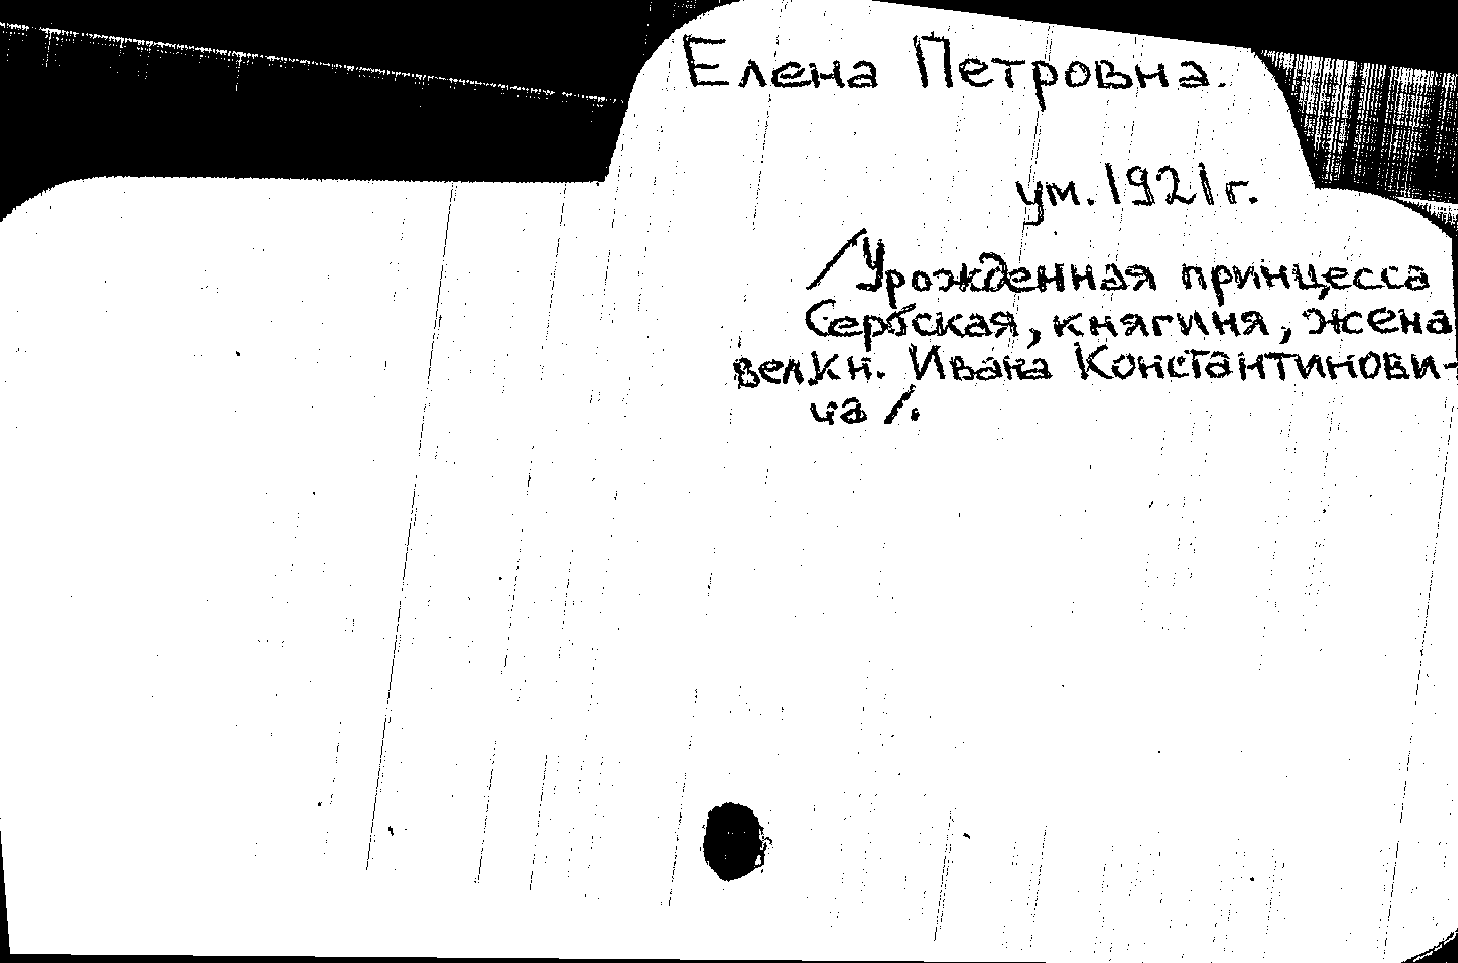 Елена Петровна.
ум. 1921 г.
/Урожденная принцесса
Сербская, княгиня, жена
вел.кн. Ивана Константинови-
ча/.